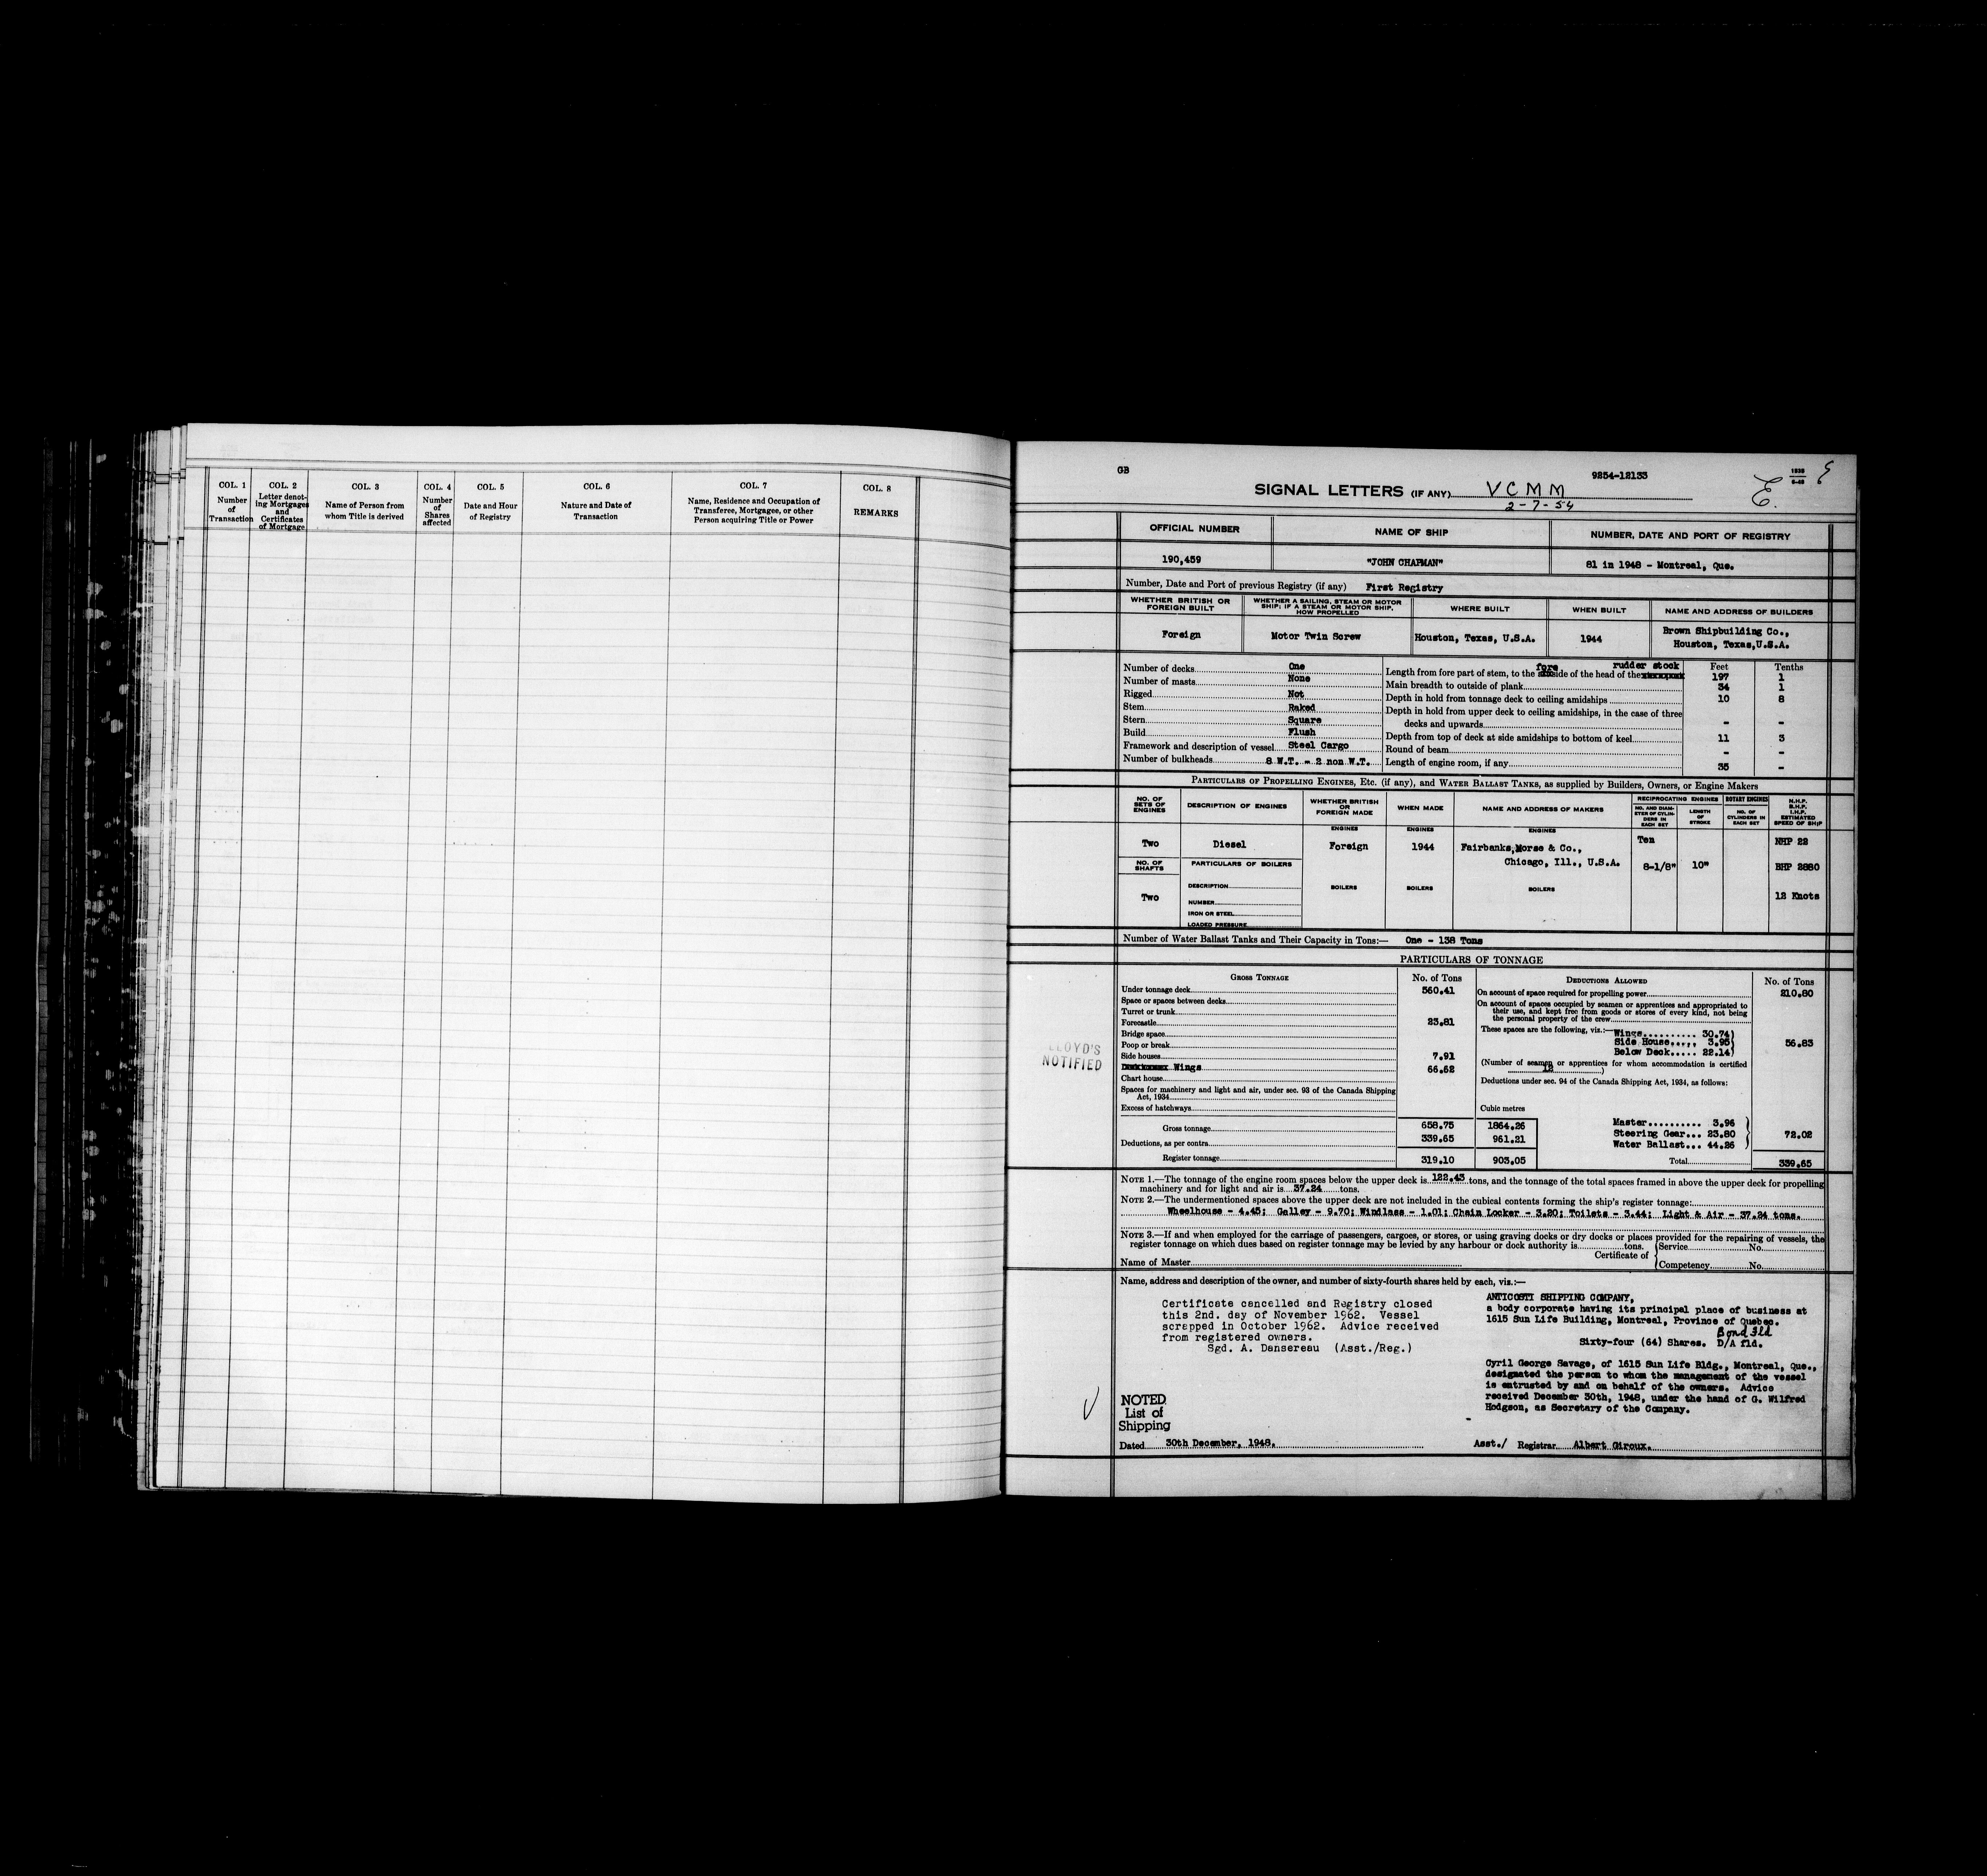 COL. 1 COL. 2 COL. 3 COL. 4 COL. 5 COL. 6 COL. 7 COL. 8
Number of Transaction
Letter denoting Mortgages and Certificates of Mortgage
Name of Person from whom Title is derived
Number of Shares affected
Date and Hour of Registry
Nature and Date of Transaction
Name, Residence and Occupation of Transferee, Mortgagee, or other Person acquiring Title or Power
REMARKS
GB 9254-12133
SIGNAL LETTERS (IF ANY) VCMM
2-7-54
E.
OFFICIAL NUMBER NAME OF SHIP NUMBER, DATE AND PORT OF REGISTRY
190,459 "JOHN CHAPMAN" 81 in 1948 - Montreal, Que.
Number, Date and Port of previous Registry (if any) First Registry
WHETHER BRITISH OR FOREIGN BUILT
WHETHER A SAILING, STEAM OR MOTOR SHIP; IF A STEAM OR MOTOR SHIP, HOW PROPELLED
WHERE BUILT WHEN BUILT NAME AND ADDRESS OF BUILDERS
Foreign Motor Twin Screw Houston, Texas, U.S.A. 1944 Brown Shipbuilding Co.,
Houston, Texas,U.S.A.
Number of decks One
Number of masts None
Rigged Not
Stem Raked
Stern Square
Build Flush
Framework and description of vessel Steel Cargo
Number of bulkheads 8 W.T. - 2 non W.T.
Feet Tenths
Length from fore part of stem, to the fore side of the head of the rudder stock 197 1
Main breadth to outside of plank 34 1
Depth in hold from tonnage deck to ceiling amidships 10 8
Depth in hold from upper deck to ceiling amidships, in the case of three
decks and upwards - -
Depth from top of deck at side amidships to bottom of keel 11 3
Round of beam - -
Length of engine room, if any 35 -
PARTICULARS OF PROPELLING ENGINES, ETC. (if any), and WATER BALLAST TANKS, as supplied by Builders, Owners, or Engine Makers
NO. OF SETS OF ENGINES
DESCRIPTION OF ENGINES
WHETHER BRITISH OR FOREIGN MADE
WHEN MADE
NAME AND ADDRESS OF MAKERS
RECIPROCATING ENGINES ROTARY ENGINES
NO. AND DIAMETER OF CYLINDERS IN EACH SET
LENGTH OF STROKE
NO. OF CYLINDERS IN EACH SET
N.H.P. B.H.P. I.H.P. ESTIMATED SPEED OF SHIP
ENGINES ENGINES ENGINES
Two Diesel Foreign 1944 Fairbanks,Morse & Co., Ten NHP 22
Chicago, Ill., U.S.A. 8-1/8" 10" BHP 2880
NO. OF SHAFTS PARTICULARS OF BOILERS
Two
DESCRIPTION BOILERS BOILERS BOILERS 12 Knots
NUMBER
IRON OR STEEL
LOADED PRESSURE
Number of Water Ballast Tanks and Their Capacity in Tons:— One - 138 Tons
PARTICULARS OF TONNAGE
GROSS TONNAGE No. of Tons
Under tonnage deck 560.41
Space or spaces between decks
Turret or trunk
Forecastle 23.81
Bridge space
Poop or break
Side houses 7.91
Wings 66.62
Chart house
Spaces for machinery and light and air, under sec. 93 of the Canada Shipping
Act, 1934
Excess of hatchways Cubic metres
Gross tonnage 658.75 1864.26
Deductions, as per contra 339.65 961.21
Register tonnage 319.10 903.05
DEDUCTIONS ALLOWED No. of Tons
On account of space required for propelling power 210.80
On account of spaces occupied by seamen or apprentices and appropriated to
their use, and kept free from goods or stores of every kind, not being
the personal property of the crew
These spaces are the following, viz.:— Wings.......... 30.74)
Side House..... 3.95) 56.83
Below Deck..... 22.14)
(Number of seamen or apprentices for whom accommodation is certified
12 )
Deductions under sec. 94 of the Canada Shipping Act, 1934, as follows:
Master.......... 3.96
Steering Gear... 23.80 72.02
Water Ballast... 44.26
Total 339.65
LLOYD'S
NOTIFIED
NOTE 1.—The tonnage of the engine room spaces below the upper deck is 122.43 tons, and the tonnage of the total spaces framed in above the upper deck for propelling
machinery and for light and air is 37.24 tons.
NOTE 2.—The undermentioned spaces above the upper deck are not included in the cubical contents forming the ship's register tonnage:
Wheelhouse - 4.45; Galley - 9.70; Windlass - 1.01; Chain Locker - 3.20; Toilets - 3.44; Light & Air - 37.24 tons.
NOTE 3.—If and when employed for the carriage of passengers, cargoes, or stores, or using graving docks or dry docks or places provided for the repairing of vessels, the
register tonnage on which dues based on register tonnage may be levied by any harbour or dock authority is tons.
Name of Master Certificate of Service No.
Competency No.
Name, address and description of the owner, and number of sixty-fourth shares held by each, viz.:—
Certificate cancelled and Registry closed
this 2nd. day of November 1962. Vessel
scrapped in October 1962. Advice received
from registered owners.
Sgd. A. Dansereau (Asst./Reg.)
ANTICOSTI SHIPPING COMPANY,
a body corporate having its principal place of business at
1615 Sun Life Building, Montreal, Province of Quebec.
Bond fld
Sixty-four (64) Shares. D/A fld.
Cyril George Savage, of 1615 Sun Life Bldg., Montreal, Que.,
designated the person to whom the management of the vessel
is entrusted by and on behalf of the owners. Advice
received December 30th, 1948, under the hand of G. Wilfred
Hodgson, as Secretary of the Company.
NOTED
List of
Shipping
Dated 30th December, 1948. Asst./ Registrar Albert Giroux.